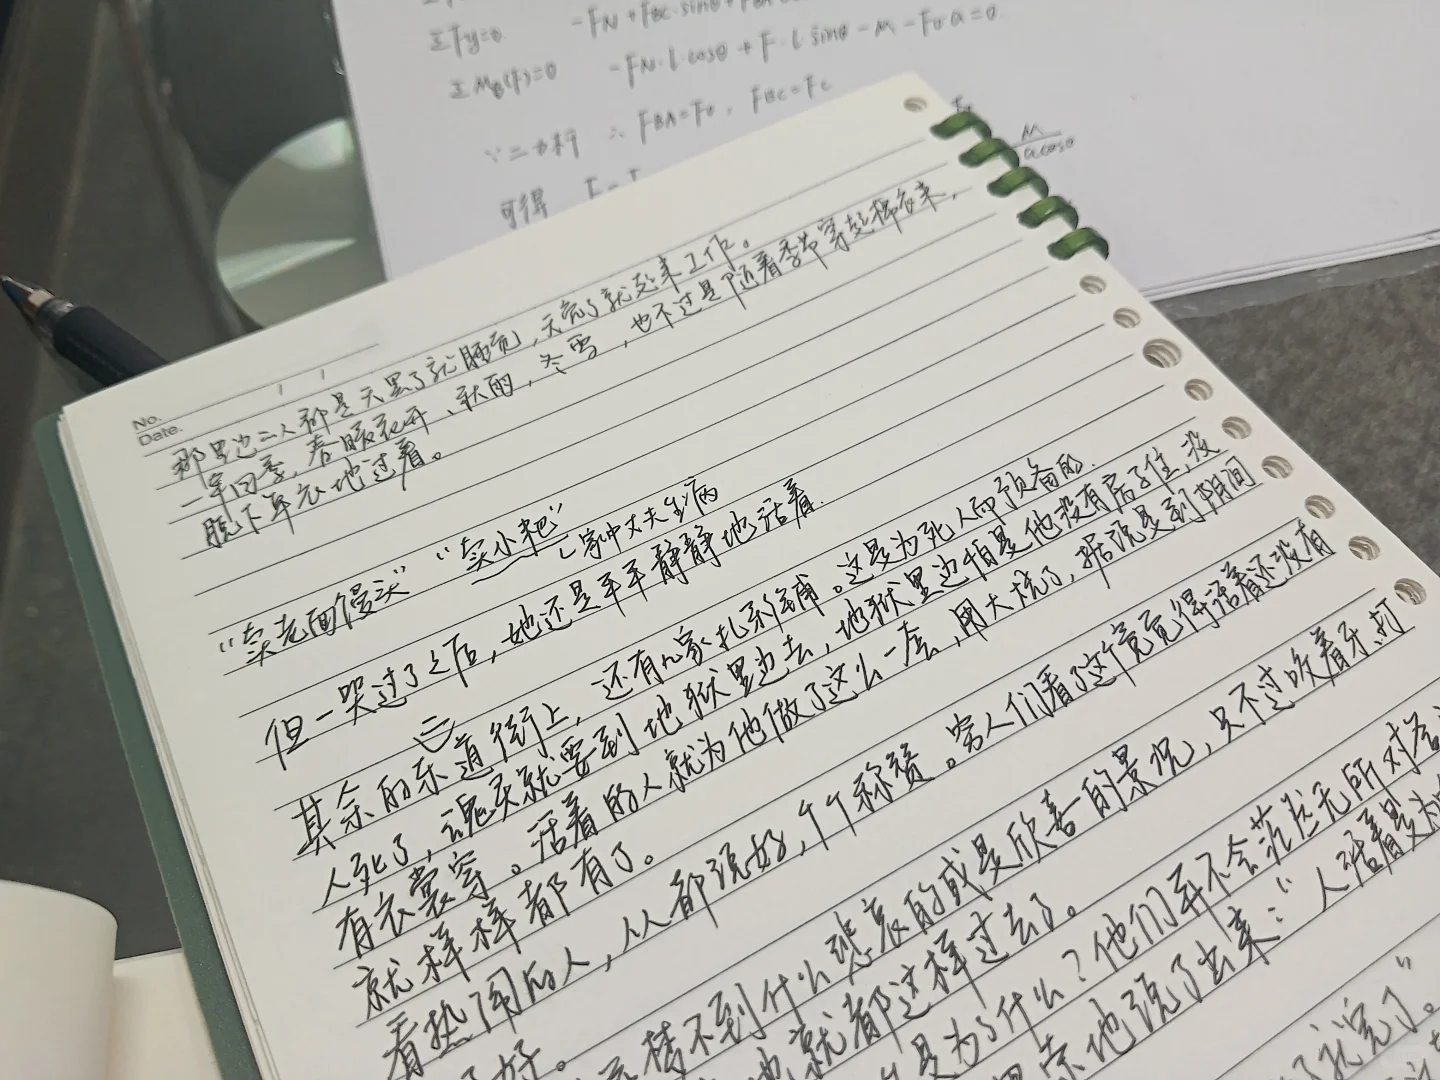 ΣFy=0 -FN+FBC·sinθ+
ΣMB(F)=0 -FN·l·cosθ+F·l·sinθ-M-F0·a=0.
∵二力杆 ∴FBA=F0, FBC=FC
M
acosθ
可得
No.
Date.
那里边的人都是天黑了就睡觉,天亮了就起来工作。
一年四季,春暖花开、秋雨,冬雪,也不过是随着季节穿起棉衣来,
脱下单衣地过着。
"卖老面馒头" "卖小耙"
家中丈夫生病
但一哭过了之后,她还是平平静静地活着.
三
其余的东道街上,还有几家扎彩铺。这是为死人而预备的.
人死了,魂灵就要到地狱里边去,地狱里边怕是他没有房子住,没
有衣裳穿。活着的人就为他做了这么一套,用火烧了,据说是到阴间
就样样都有了。
看热闹的人,人人都说好,个个称赞。穷人们看了这个竟觉得活着还没有
好。
找不到什么悲哀的或是欣喜的景况,只不过吹着风,打
就都这样过去了。
是为了什么?他们并不会茫然无所对答
地说了出来:"人活着是为
了就完了。"